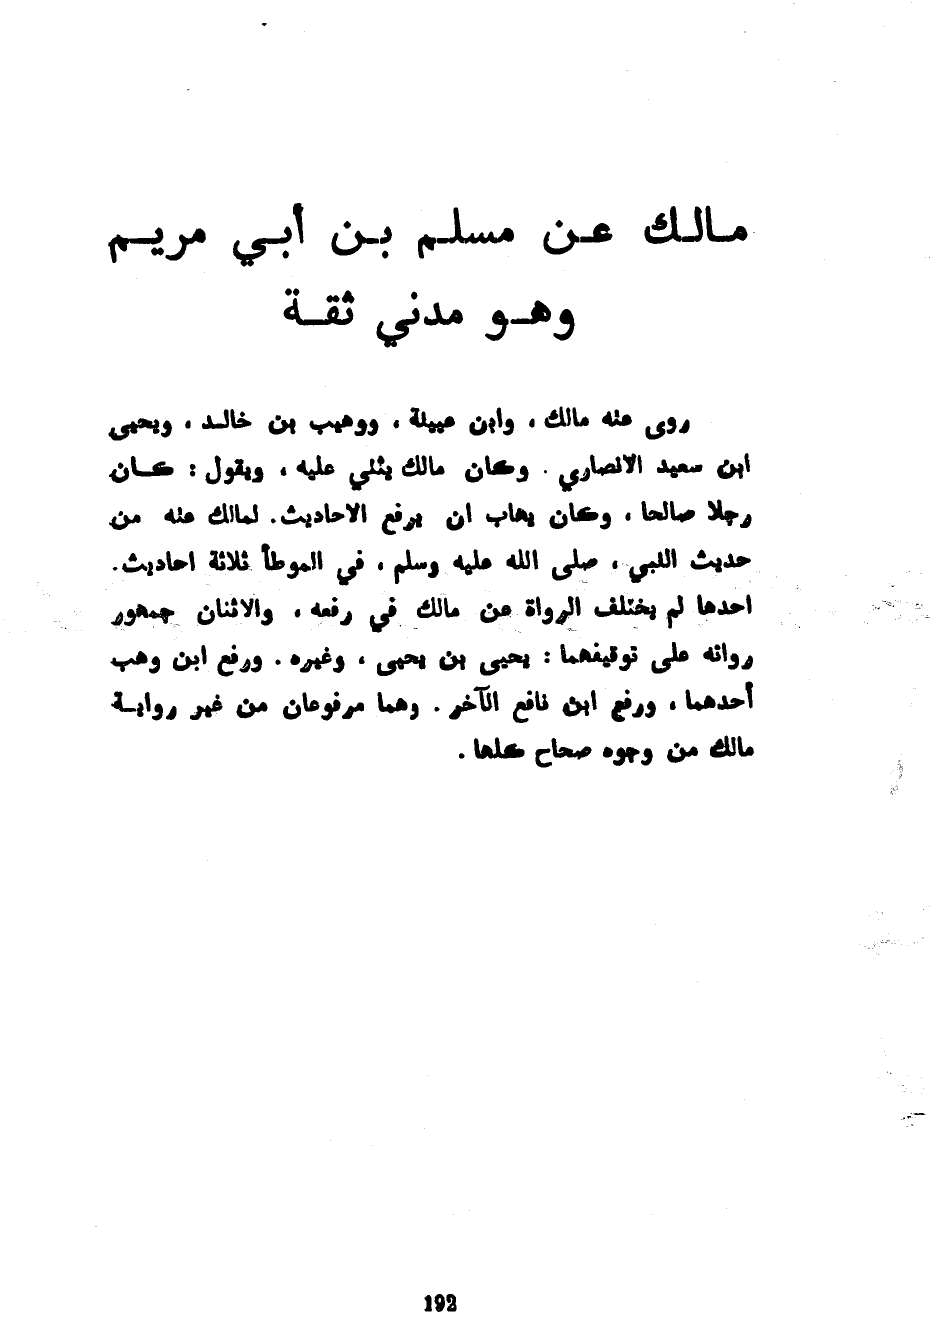 مالك عن مسلم بن أبي مريم
وهو مدني ثقة
روى عنه مالك ، وابن عيينة ، ووهيب بن خالد ، ويحيى
ابن سعيد الانصاري . وكان مالك يثني عليه ، ويقول : كان
رجلا صالحا ، وكان يهاب ان يرفع الاحاديث. لمالك عنه من
حديث النبي ، صلى الله عليه وسلم ، في الموطأ ثلاثة احاديث.
احدها لم يختلف الرواة عن مالك في رفعه ، والاثنان جمهور
رواته على توقيفهما : يحيى بن يحيى ، وغيره . ورفع ابن وهب
أحدهما ، ورفع ابن نافع الآخر . وهما مرفوعان من غير رواية
مالك من وجوه صحاح كلها .
192